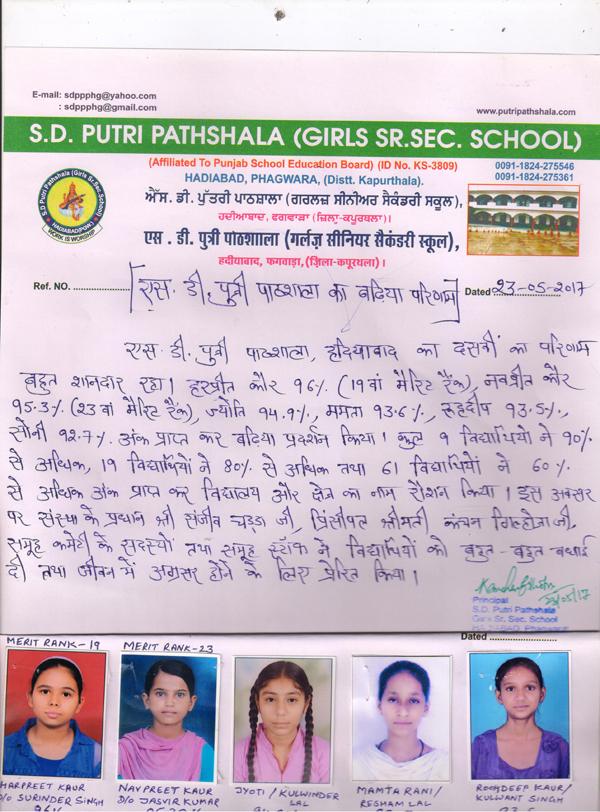 E-mail: sdppphg@yahoo.com
: sdppphg@gmail.com
www.putripathshala.com
S.D. PUTRI PATHSHALA (GIRLS SR.SEC. SCHOOL)
(Affiliated To Punjab School Education Board) (ID No. KS-3809)
0091-1824-275546
HADIABAD, PHAGWARA, (Distt. Kapurthala).
0091-1824-275361
S.D Putri Pathshala (Girls Sr.Sec. School)
HADIABAD(PHG.)
WORK IS WORSHIP
ਐੱਸ. ਡੀ. ਪੁੱਤਰੀ ਪਾਠਸ਼ਾਲਾ (ਗਰਲਜ਼ ਸੀਨੀਅਰ ਸੈਕੰਡਰੀ ਸਕੂਲ),
ਹਦੀਆਬਾਦ, ਫਗਵਾੜਾ (ਜ਼ਿਲਾ-ਕਪੂਰਥਲਾ)।
एस. डी. पुत्री पाठशााला (गर्लज़ सीनियर सैकंडरी स्कूल),
हदीयाबाद, फगवाड़ा, (ज़िला-कपूरथला)।
Ref. NO.
एस. डी. पुत्री पाठशाला का बढिया परिणाम
Dated 23-05-2017
एस. डी. पुत्री पाठशाला, हदियाबाद का दसवीं का परिणाम
बहुत शानदार रहा। हरप्रीत कौर 96% (19वां मैरिट रैंक), नवप्रीत कौर
95.3% (23वां मैरिट रैंक), ज्योति 94.9%, ममता 93.6%, रूहदीप 93.5%,
सोनी 92.7% अंक प्राप्त कर बढिया प्रदर्शन किया। कुल 9 विद्यार्थियों ने 90%
से अधिक, 19 विद्यार्थियों ने 80% से अधिक तथा 61 विद्यार्थियों ने 60%
से अधिक अंक प्राप्त कर विद्यालय और क्षेत्र का नाम रौशन किया। इस अवसर
पर संस्था के प्रधान श्री संजीव चड्डा जी, प्रिंसीपल श्रीमती कंचन गिल्होत्रा जी,
समूह कमेटी के सदस्यों तथा समूह स्टॉफ ने विद्यार्थियों को बहुत-बहुत बधाई
दी तथा जीवन में अग्रसर होने के लिए प्रेरित किया।
23/05/17
Principal
S.D. Putri Pathshala
Girls Sr. Sec. School
HADIABAD, Phagwara
Dated
MERIT RANK-19
MERIT RANK-23
HARPREET KAUR
D/O SURINDER SINGH
NAVPREET KAUR
D/O JASVIR KUMAR
JYOTI / KULWINDER
LAL
MAMTA RANI/
RESHAM LAL
ROOHDEEP KAUR/
KULWANT SINGH